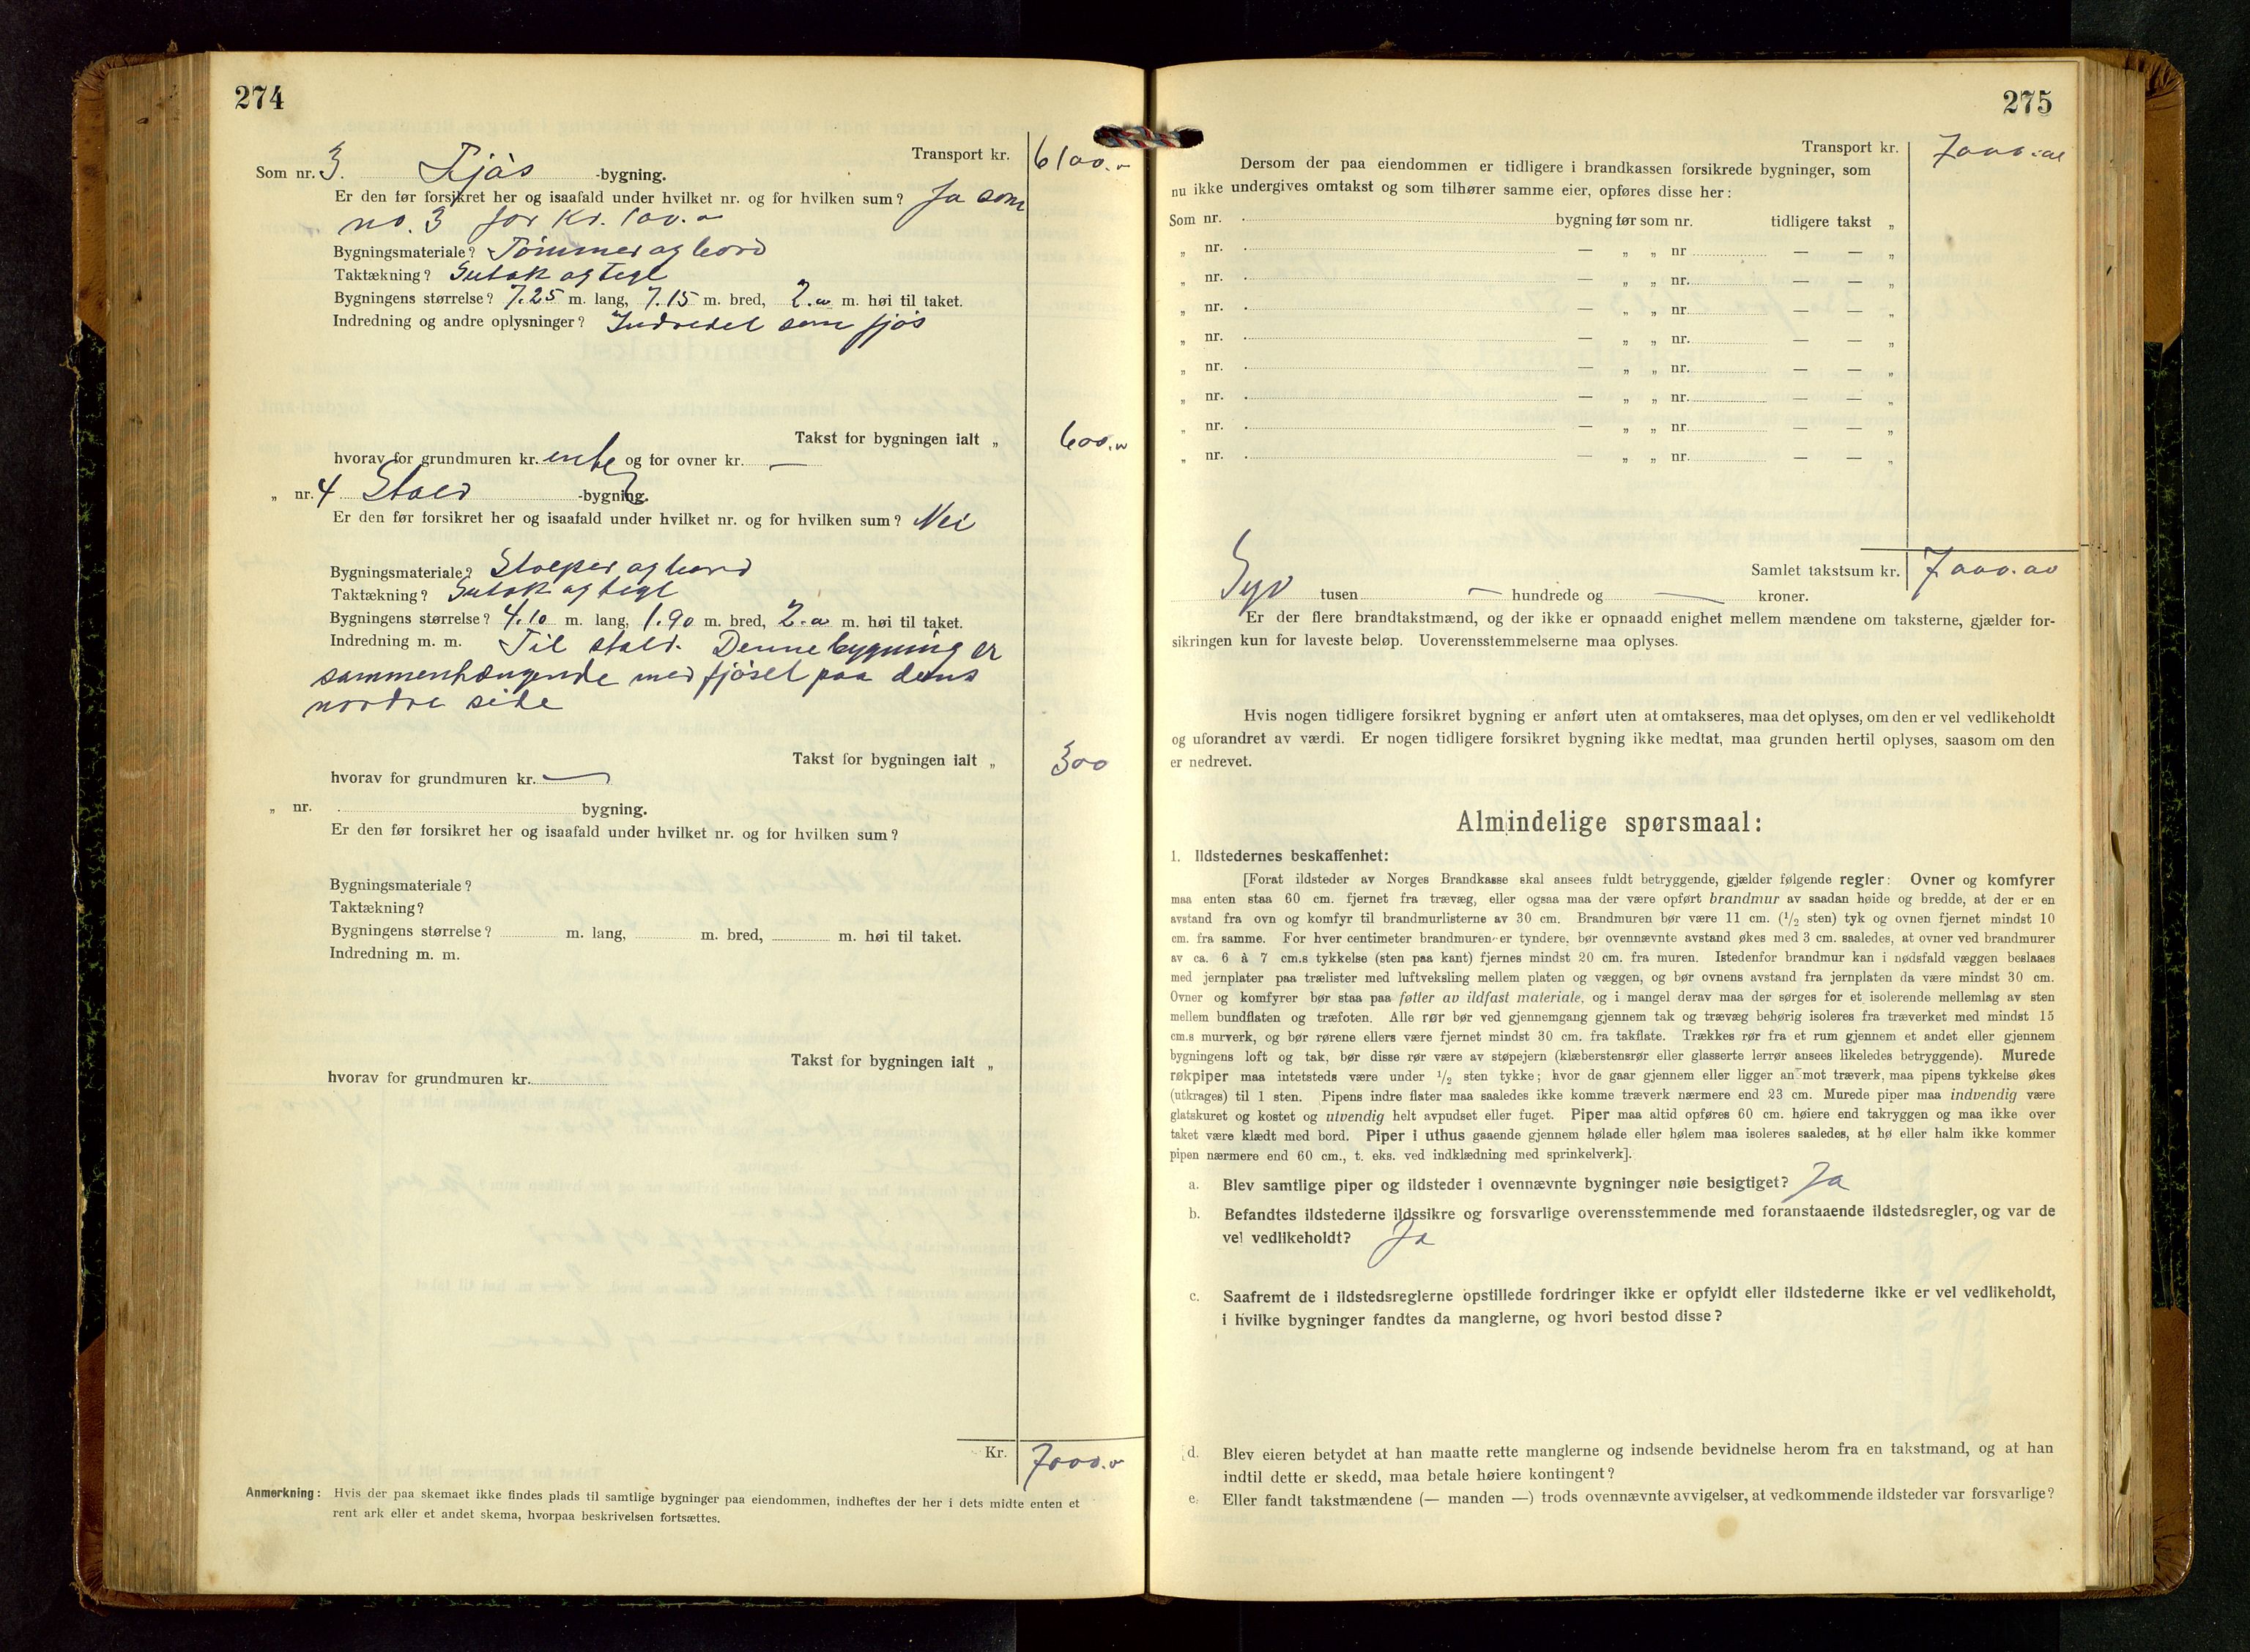 274
Transport kr. 6100.-
Som nr. 3. Fjøs -bygning.
Er den før forsikret her og isaafald under hvilket nr. og for hvilken sum? Ja som
no. 3 for Kr. 100.-
Bygningsmateriale? Tømmer og bord
Taktækning? Sutak og tegl
Bygningens størrelse? 7.25 m. lang, 7.15 m. bred, 2.00 m. høi til taket.
Indredning og andre oplysninger? Indredet som fjøs
Takst for bygningen ialt „ 600.-
hvorav for grundmuren kr. intet og for ovner kr. —
„ nr. 4 Stald -bygning.
Er den før forsikret her og isaafald under hvilket nr. og for hvilken sum? Nei
Bygningsmateriale? Stolper og bord
Taktækning? Sutak og tegl
Bygningens størrelse? 4.10 m. lang, 1.90 m. bred, 2.00 m. høi til taket.
Indredning m. m. Til stald. Denne bygning er
sammenhængende med fjøset paa dens
nordre side
Takst for bygningen ialt „ 300
hvorav for grundmuren kr. —
„ nr. bygning.
Er den før forsikret her og isaafald under hvilket nr. og for hvilken sum?
Bygningsmateriale?
Taktækning?
Bygningens størrelse? m. lang, m. bred, m. høi til taket.
Indredning m. m.
Takst for bygningen ialt „
hvorav for grundmuren kr.
Kr. 7000.-
Anmerkning: Hvis der paa skemaet ikke findes plads til samtlige bygninger paa eiendommen, indheftes der her i dets midte enten et
rent ark eller et andet skema, hvorpaa beskrivelsen fortsættes.
275
Transport kr. 7000.00
Dersom der paa eiendommen er tidligere i brandkassen forsikrede bygninger, som
nu ikke undergives omtakst og som tilhører samme eier, opføres disse her:
Som nr. bygning før som nr. tidligere takst „
„ nr. — „ „ nr — — „
„ nr. — „ „ nr. — — „
„ nr. — „ „ nr. — — „
„ nr. — „ „ nr. — — „
„ nr. — „ „ nr. — — „
„ nr. — „ „ nr. — — „
„ nr. — „ „ nr. — — „
„ nr. — „ „ nr. — — „
Samlet takstsum kr. 7000.00
Syv tusen — hundrede og — kroner.
Er der flere brandtakstmænd, og der ikke er opnaadd enighet mellem mændene om taksterne, gjælder for-
sikringen kun for laveste beløp. Uoverensstemmelserne maa oplyses.
Hvis nogen tidligere forsikret bygning er anført uten at omtakseres, maa det oplyses, om den er vel vedlikeholdt
og uforandret av værdi. Er nogen tidligere forsikret bygning ikke medtat, maa grunden hertil oplyses, saasom om den
er nedrevet.
Almindelige spørsmaal:
1. Ildstedernes beskaffenhet:
[Forat ildsteder av Norges Brandkasse skal ansees fuldt betryggende, gjælder følgende regler: Ovner og komfyrer
maa enten staa 60 cm. fjernet fra trævæg, eller ogsaa maa der være opført brandmur av saadan høide og bredde, at der er en
avstand fra ovn og komfyr til brandmurlisterne av 30 cm. Brandmuren bør være 11 cm. (1/2 sten) tyk og ovnen fjernet mindst 10
cm. fra samme. For hver centimeter brandmuren er tyndere, bør ovennævnte avstand økes med 3 cm. saaledes, at ovner ved brandmurer
av ca. 6 à 7 cm.s tykkelse (sten paa kant) fjernes mindst 20 cm. fra muren. Istedenfor brandmur kan i nødsfald væggen beslaaes
med jernplater paa trælister med luftveksling mellem platen og væggen, og bør ovnens avstand fra jernplaten da være mindst 30 cm.
Ovner og komfyrer bør staa paa føtter av ildfast materiale, og i mangel derav maa der sørges for et isolerende mellemlag av sten
mellem bundflaten og træfoten. Alle rør bør ved gjennemgang gjennem tak og trævæg behørig isoleres fra træverket med mindst 15
cm.s murverk, og bør rørene ellers være fjernet mindst 30 cm. fra takflate. Trækkes rør fra et rum gjennem et andet eller gjennem
bygningens loft og tak, bør disse rør være av støpejern (klæberstensrør eller glasserte lerrør ansees likeledes betryggende). Murede
røkpiper maa intetsteds være under 1/2 sten tykke; hvor de gaar gjennem eller ligger an mot træverk, maa pipens tykkelse økes
(utkrages) til 1 sten. Pipens indre flater maa saaledes ikke komme træverk nærmere end 23 cm. Murede piper maa indvendig være
glatskuret og kostet og utvendig helt avpudset eller fuget. Piper maa altid opføres 60 cm. høiere end takryggen og maa ikke over
taket være klædt med bord. Piper i uthus gaaende gjennem hølade eller hølem maa isoleres saaledes, at hø eller halm ikke kommer
pipen nærmere end 60 cm., t. eks. ved indklædning med sprinkelverk].
a. Blev samtlige piper og ildsteder i ovennævnte bygninger nøie besigtiget? Ja
b. Befandtes ildstederne ildssikre og forsvarlige overensstemmende med foranstaaende ildstedsregler, og var de
vel vedlikeholdt? Ja
c. Saafremt de i ildstedsreglerne opstillede fordringer ikke er opfyldt eller ildstederne ikke er vel vedlikeholdt,
i hvilke bygninger fandtes da manglerne, og hvori bestod disse?
d. Blev eieren betydet at han maatte rette manglerne og indsende bevidnelse herom fra en takstmand, og at han
indtil dette er skedd, maa betale høiere kontingent?
e. Eller fandt takstmændene (— manden —) trods ovennævnte avvigelser, at vedkommende ildsteder var forsvarlige?